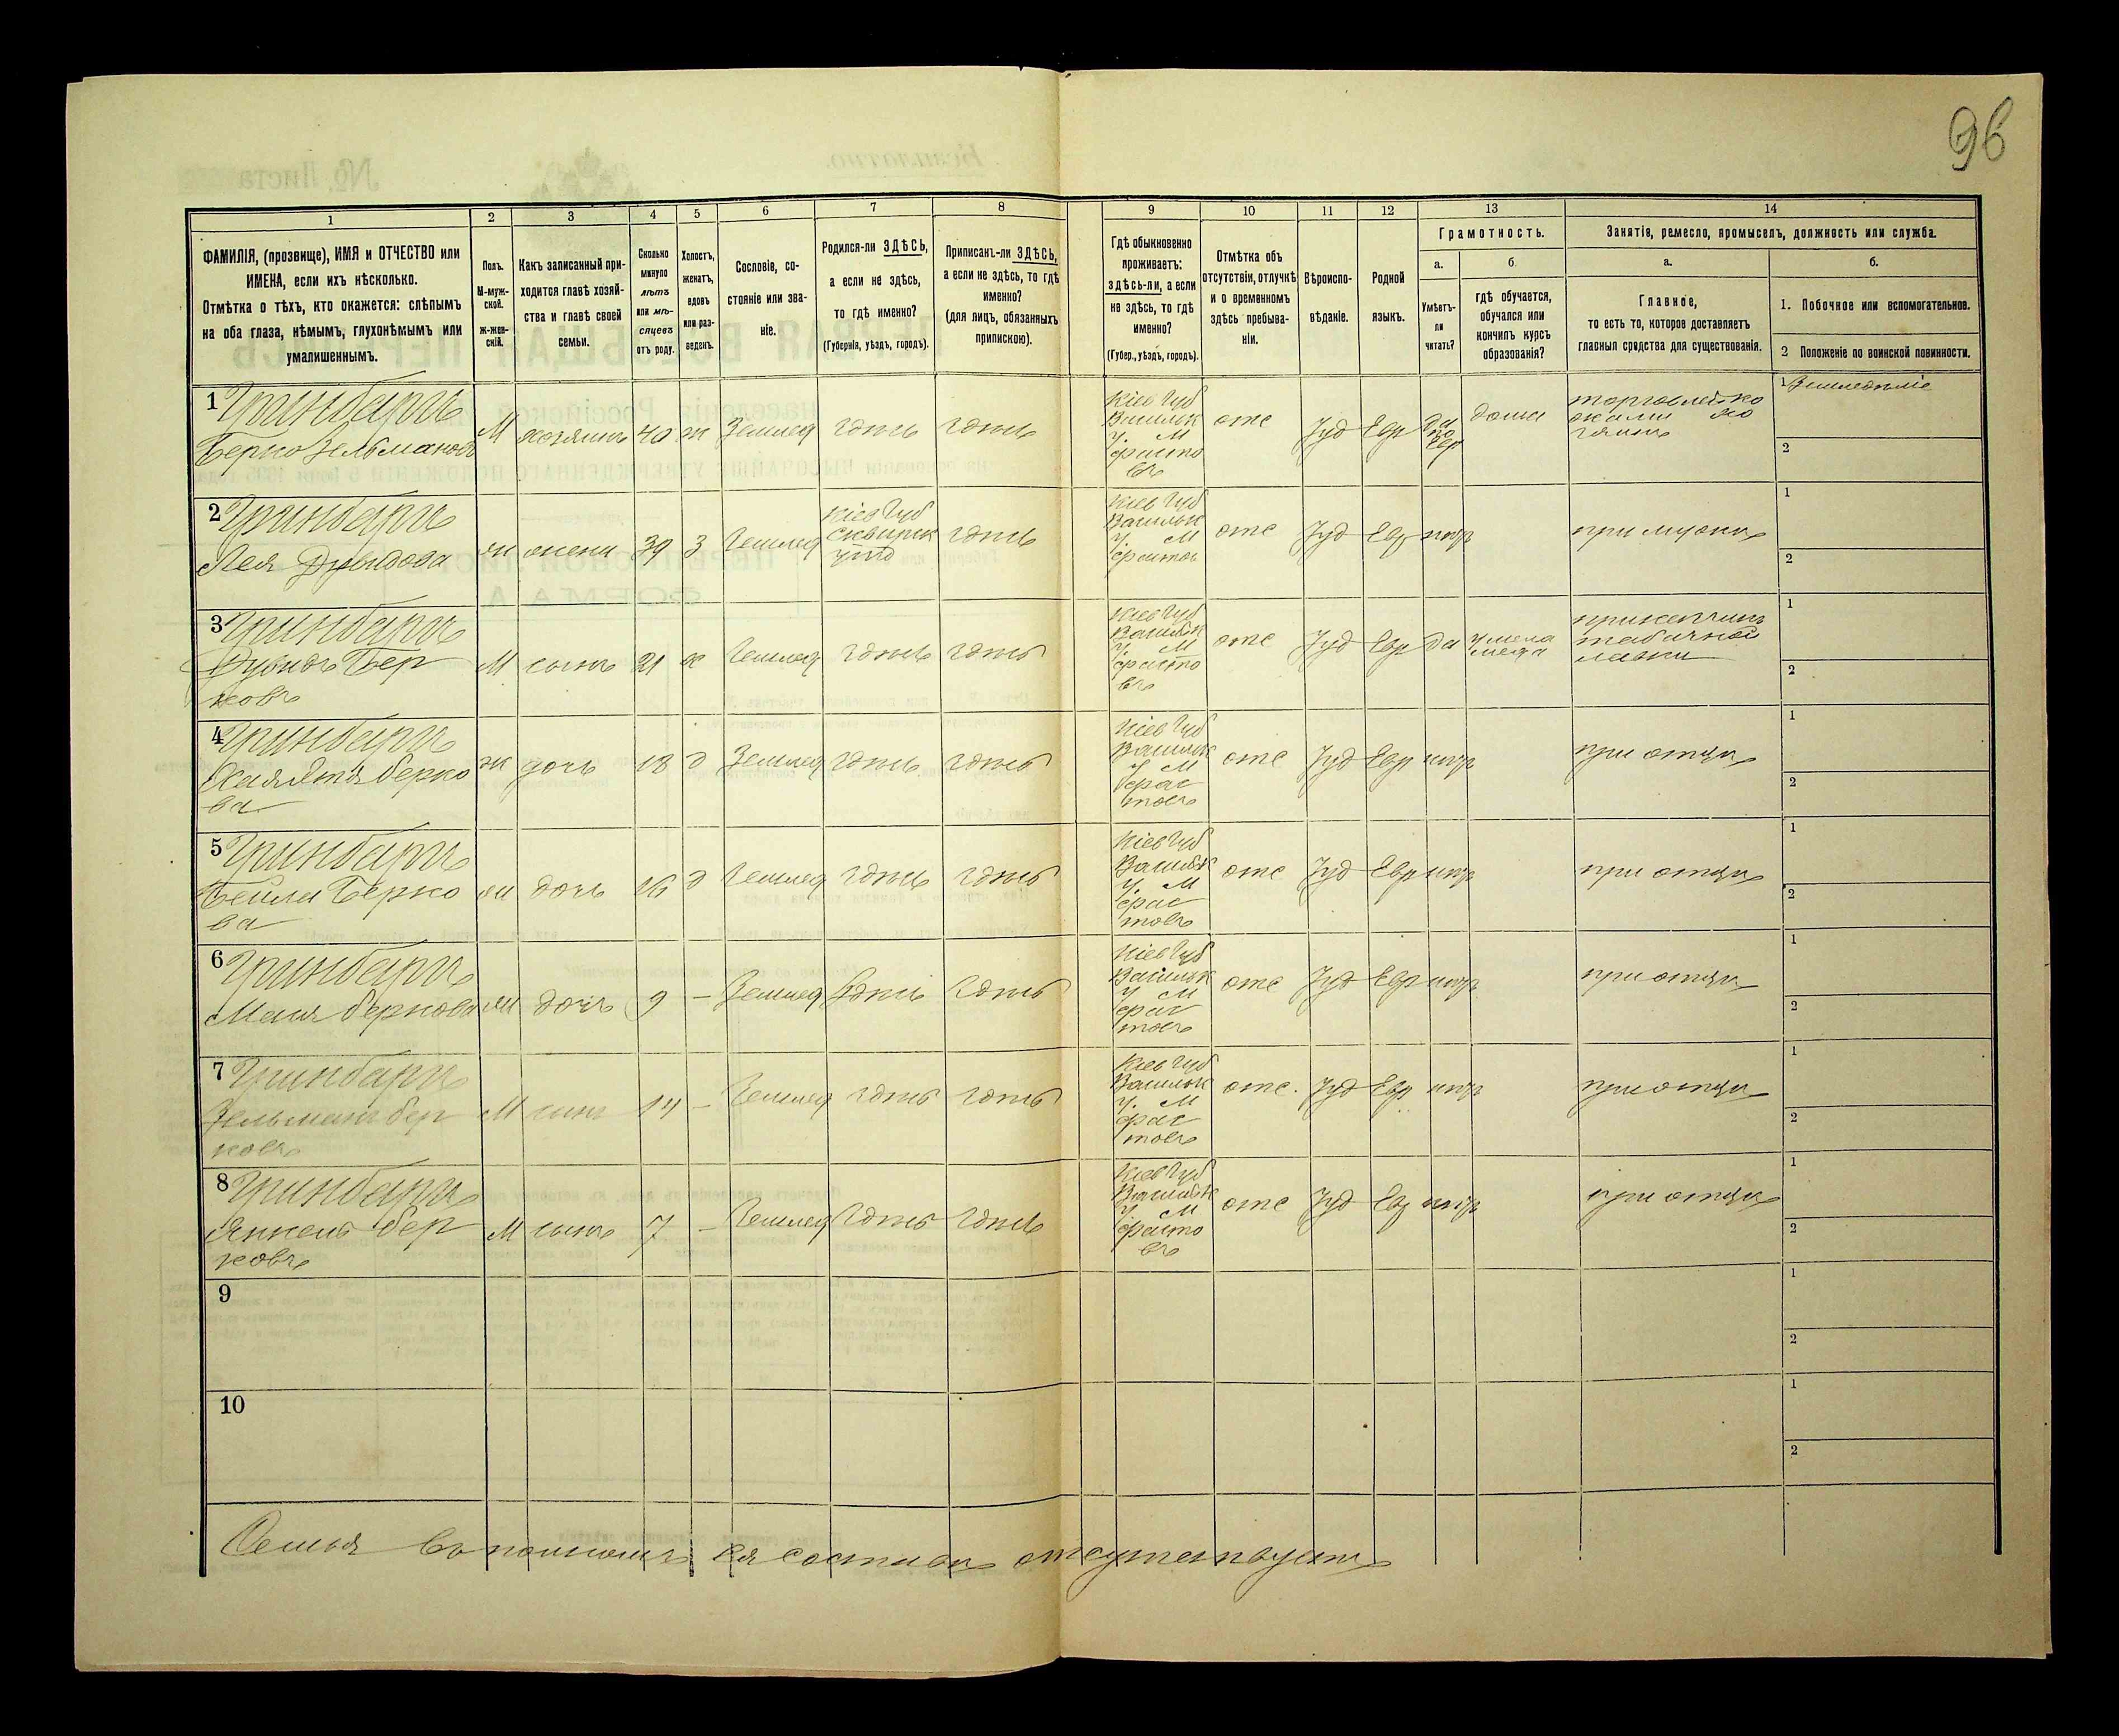 96
1 2 3 4 5 6 7 8 9 10 11 12 13 14
ФАМИЛІЯ, (прозвище), ИМЯ и ОТЧЕСТВО или
ИМЕНА, если ихъ нѣсколько.
Отмѣтка о тѣхъ, кто окажется: слѣпымъ
на оба глаза, нѣмымъ, глухонѣмымъ или
умалишеннымъ.
Полъ.
М-муж-
ской.
Ж-жен-
скій.
Какъ записанный при-
ходится главѣ хозяй-
ства и главѣ своей
семьи.
Сколько
минуло
лѣтъ
или мѣ-
сяцевъ
отъ роду.
Холостъ,
женатъ,
вдовъ
или раз-
веденъ.
Сословіе, со-
стояніе или зва-
ніе.
Родился-ли ЗДѢСЬ,
а если не здѣсь,
то гдѣ именно?
(Губернія, уѣздъ, городъ).
Приписанъ-ли ЗДѢСЬ,
а если не здѣсь, то гдѣ
именно?
(для лицъ, обязанныхъ
припискою).
Гдѣ обыкновенно
проживаетъ:
здѣсь-ли, а если
не здѣсь, то гдѣ
именно?
(Губер., уѣздъ, городъ).
Отмѣтка объ
отсутствіи, отлучкѣ
и о временномъ
здѣсь пребыва-
ніи.
Вѣроиспо-
вѣданіе.
Родной
языкъ.
Грамотность.
а.
Умѣетъ-
ли
читать?
б.
гдѣ обучается,
обучался или
кончилъ курсъ
образованія?
Занятіе, ремесло, промыселъ, должность или служба.
а.
Главное,
то есть то, которое доставляетъ
главныя средства для существованія.
б.
1. Побочное или вспомогательное.
2 Положеніе по воинской повинности.
1 Гринбергъ
Берко Зельмановъ
М хозяинъ 40 ж Землед здѣсь здѣсь
Кіев Губ
Васильк
у. М
Фасто
въ
отс Іуд Евр да
по
Евр
дома
торговлей ко
жами хо
зяинъ
1 Земледѣліе
2
2 Гринбергъ
Лея Дувидова
жн жена 39 з Землед
Кіев Губ
Сквирск
уѣзд
здѣсь
Кіев Губ
Васильк
у. М
Фастов
отс Іуд Евр нѣтъ
при мужѣ
1
2
3 Гринбергъ
Дувидъ Бер
ковъ
М сынъ 21 х Землед здѣсь здѣсь
Кіев Губ
Васильк
у. М
Фасто
въ
отс Іуд Евр да
у мела
меда
прикащикъ
табачной
лавки
1
2
4 Гринбергъ
Берко
ва
жн дочь 18 д Землед здѣсь здѣсь
Кіев Губ
Васильк
у М
Фас
товъ
отс Іуд Евр нѣтъ
при отцѣ
1
2
5 Гринбергъ
Бейла Берко
ва
жн дочь 16 д Землед здѣсь здѣсь
Кіев Губ
Васильк
у. М
Фас
товъ
отс Іуд Евр нѣтъ
при отцѣ
1
2
6 Гринбергъ
Маня Беркова
жн дочь 9 – Землед здѣсь здѣсь
Кіев Губ
Васильк
у М
Фас
товъ
отс Іуд Евр нѣтъ
при отцѣ
1
2
7 Гринбергъ
Зельманъ Бер
ковъ
М сынъ 14 – Землед здѣсь здѣсь
Кіев Губ
Васильк
у. М
Фас
товъ
отс. Іуд Евр нѣтъ
при отцѣ
1
2
8 Гринбергъ
Янкель Бер
ковъ
М сынъ 7 – Землед здѣсь здѣсь
Кіев Губ
Васильк
у М
Фасто
въ
отс Іуд Евр нѣтъ
при отцѣ
1
2
9
1
2
10
1
2
Семья въ полномъ ея составѣ отсутствуетъ